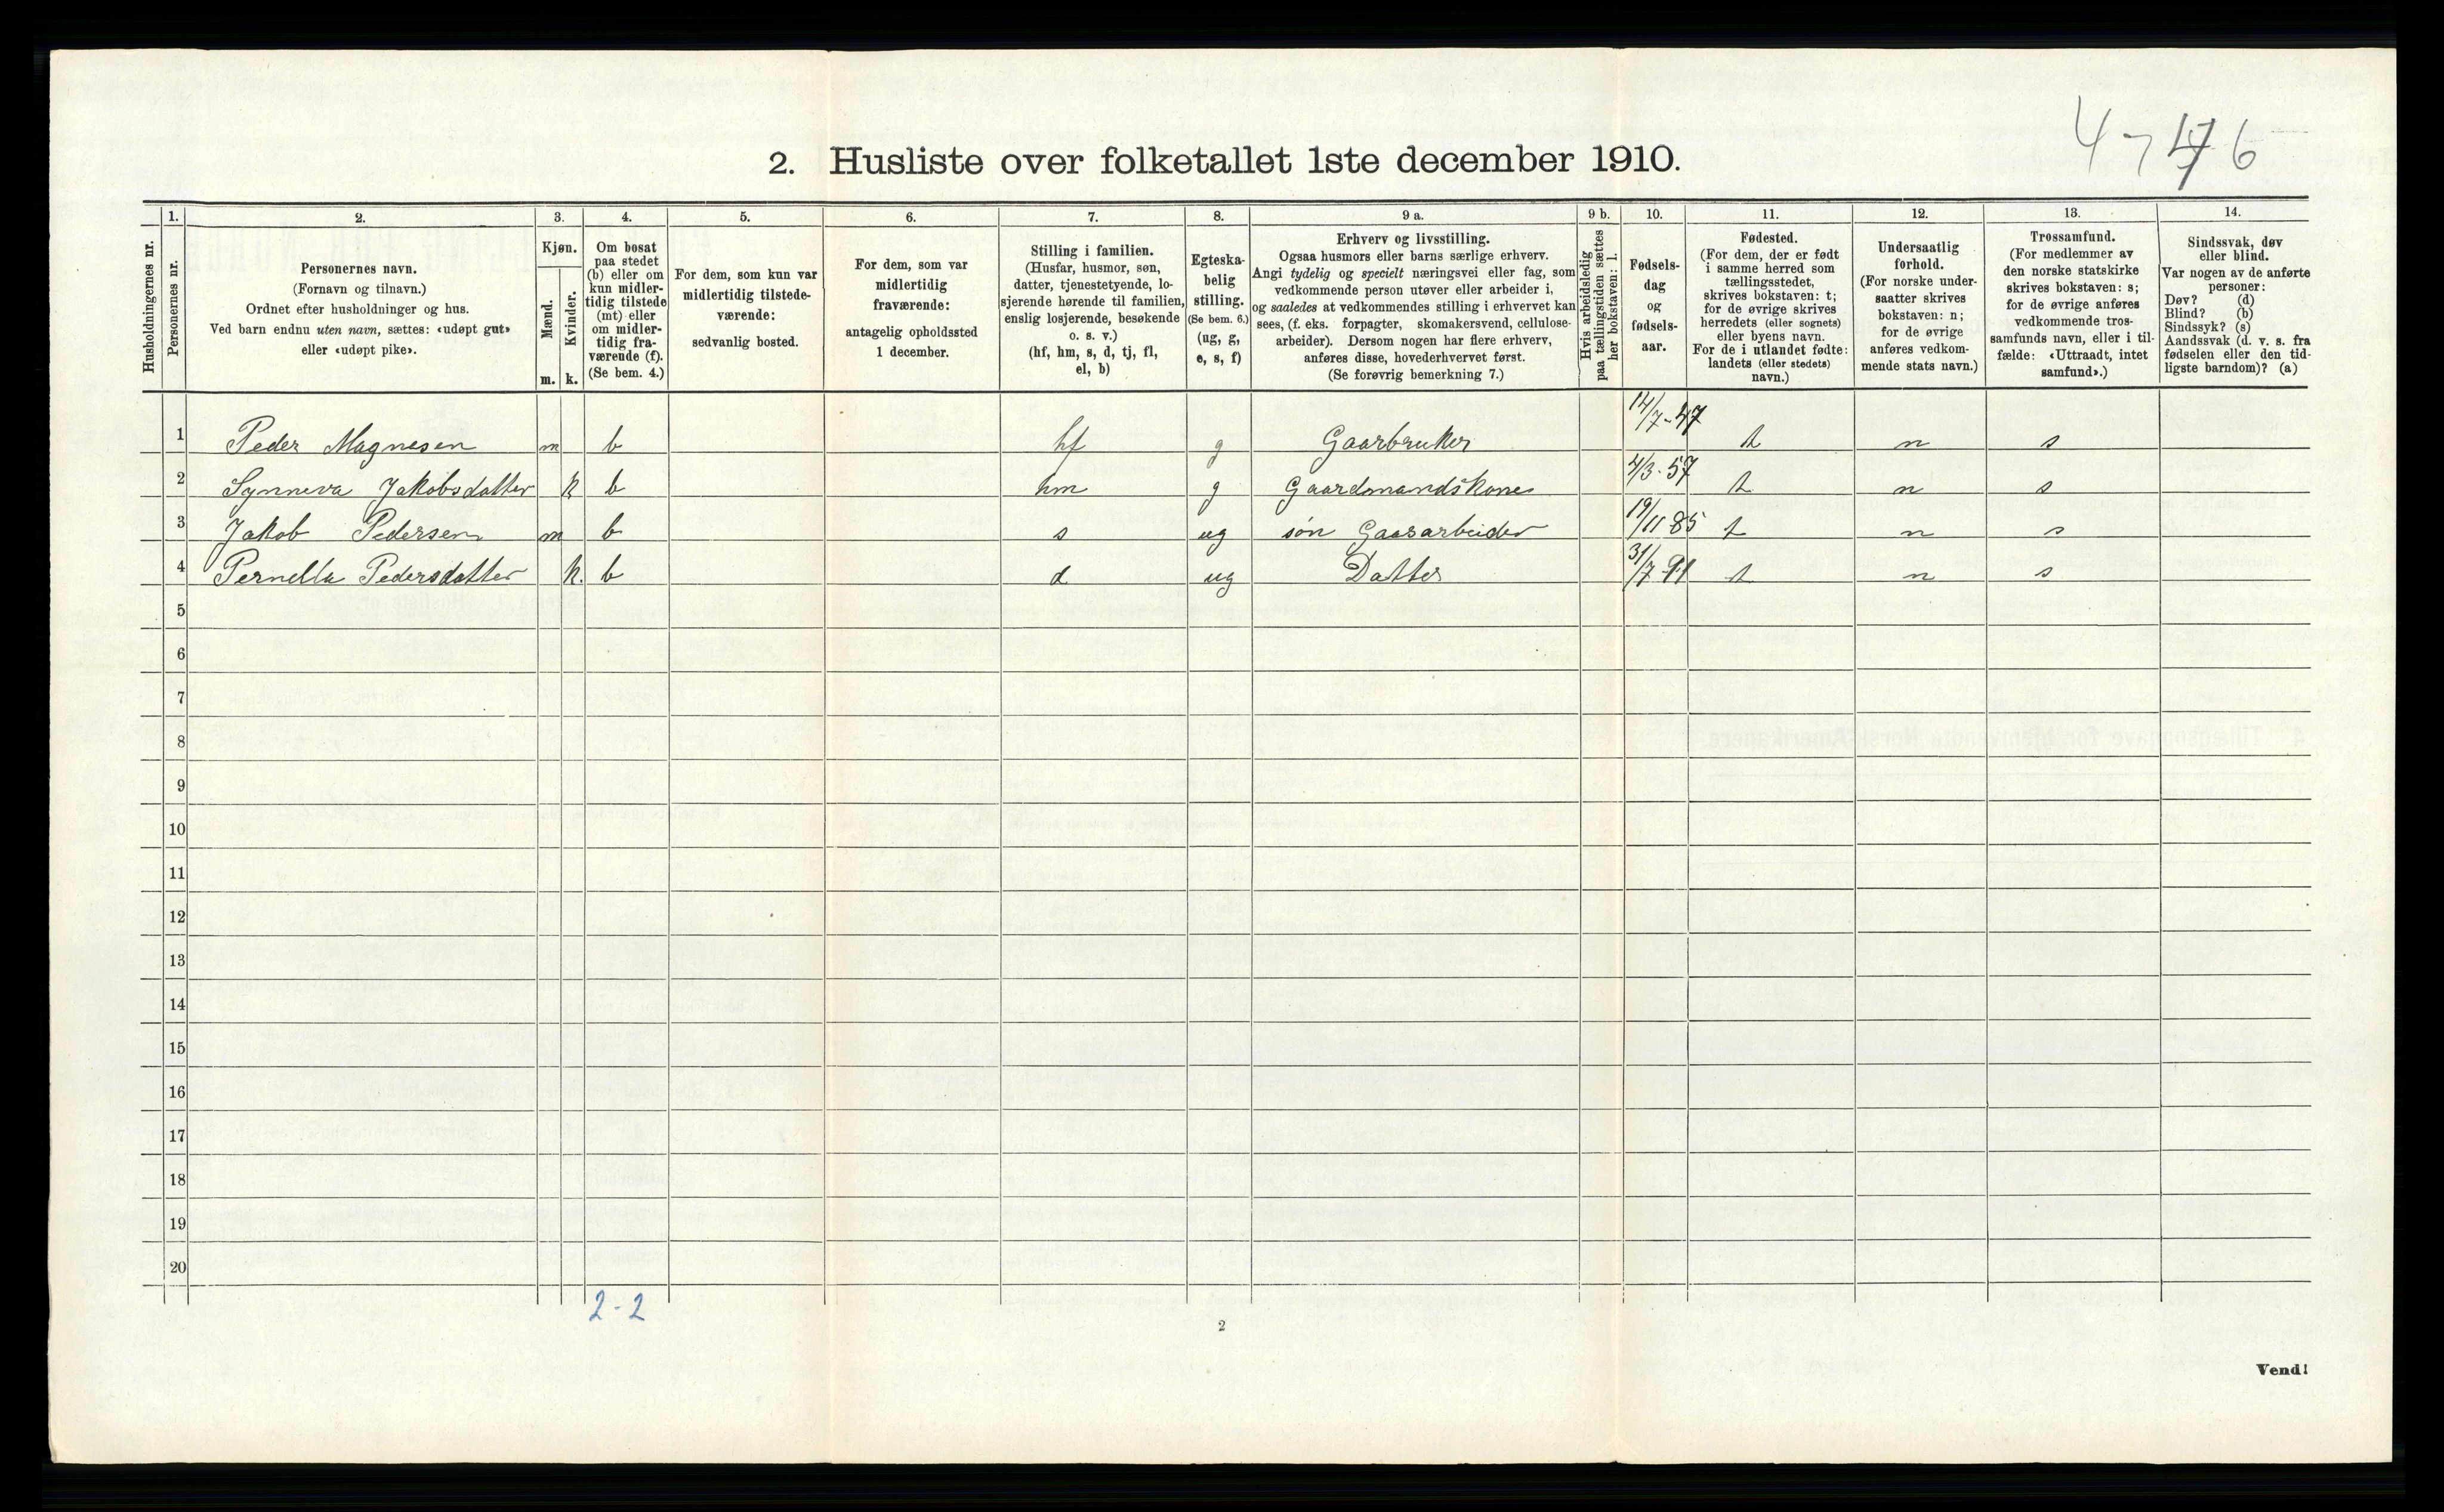 4-476
2. Husliste over folketallet 1ste december 1910.
1. 2. 3. 4. 5. 6. 7. 8. 9 a. 9 b. 10. 11. 12. 13. 14.
Husholdningernes nr.
Personernes nr.
Personernes navn.
(Fornavn og tilnavn.)
Ordnet efter husholdninger og hus.
Ved barn endnu uten navn, sættes: «udøpt gut»
eller «udøpt pike».
Kjøn.
Mænd.
Kvinder.
m. k.
Om bosat
paa stedet
(b) eller om
kun midler-
tidig tilstede
(mt) eller
om midler-
tidig fra-
værende (f).
(Se bem. 4.)
For dem, som kun var
midlertidig tilstede-
værende:
sedvanlig bosted.
For dem, som var
midlertidig
fraværende:
antagelig opholdssted
1 december.
Stilling i familien.
(Husfar, husmor, søn,
datter, tjenestetyende, lo-
sjerende hørende til familien,
enslig losjerende, besøkende
o. s. v.)
(hf, hm, s, d, tj, fl,
el, b)
Egteska-
belig
stilling.
(Se bem. 6.)
(ug, g,
e, s, f)
Erhverv og livsstilling.
Ogsaa husmors eller barns særlige erhverv.
Angi tydelig og specielt næringsvei eller fag, som
vedkommende person utøver eller arbeider i,
og saaledes at vedkommendes stilling i erhvervet kan
sees, (f. eks. forpagter, skomakersvend, cellulose-
arbeider). Dersom nogen har flere erhverv,
anføres disse, hovederhvervet først.
(Se forøvrig bemerkning 7.)
Hvis arbeidsledig
paa tællingstiden sættes
her bokstaven: l.
Fødsels-
dag
og
fødsels-
aar.
Fødested.
(For dem, der er født
i samme herred som
tællingsstedet,
skrives bokstaven: t;
for de øvrige skrives
herredets (eller sognets)
eller byens navn.
For de i utlandet fødte:
landets (eller stedets)
navn.)
Undersaatlig
forhold.
(For norske under-
saatter skrives
bokstaven: n;
for de øvrige
anføres vedkom-
mende stats navn.)
Trossamfund.
(For medlemmer av
den norske statskirke
skrives bokstaven: s;
for de øvrige anføres
vedkommende tros-
samfunds navn, eller i til-
fælde: «Uttraadt, intet
samfund».)
Sindssvak, døv
eller blind.
Var nogen av de anførte
personer:
Døv? (d)
Blind? (b)
Sindssyk? (s)
Aandssvak (d. v. s. fra
fødselen eller den tid-
ligste barndom)? (a)
1 Peder Magnesen m b hf g Gaarbruker 14/7-47 t n s
2 Synneva Jakobsdatter k b hm g Gaardmandskone 4/3-57 t n s
3 Jakob Pedersen m b s ug søn Gaararbeider 19/11 85 t n s
4 Pernella Pedersdatter k. b d ug Datter 31/7-91 t n s
5
6
7
8
9
10
11
12
13
14
15
16
17
18
19
20
2-2
2
Vend!